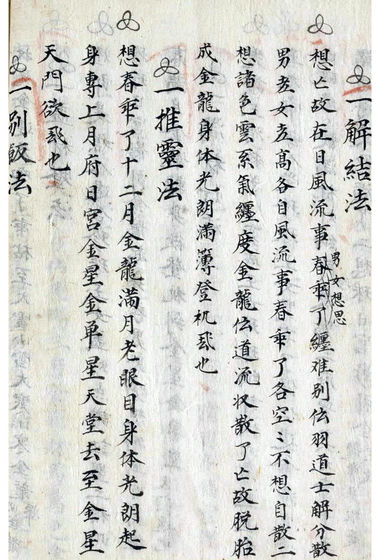 一解結法
想亡故在日風流事春乖了纏难别伝羽道士解分散
男女想思
男老女玄高各自風流事春乖了各空〻不想自散二
想諸色雲系氣纏度金龍伝道流汉散了亡故脱胎
成金龍身体光朗滿簿登机
也
一推靈法
想春乖了十二月金龍滿月老眼目身体光朗起
身專上月府日宮金星金單星天堂去至金星
天門欲
也
一别飯法